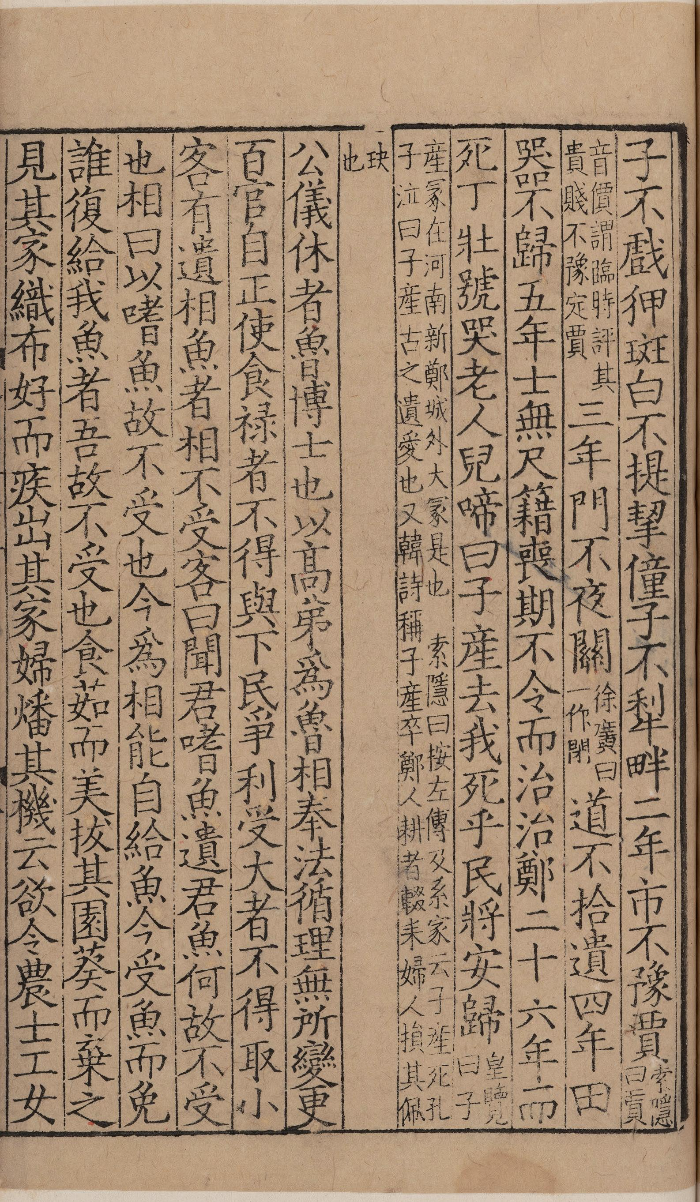 子不戲狎斑白不提挈僮子不犁畔二年市不豫賈索隱曰賈
音價謂臨時評其貴賤不豫定賈三年門不夜關徐廣曰一作閉道不拾遺四年田
器不歸五年士無尺籍喪期不令而治治鄭二十六年而
死丁壯號哭老人兒啼曰子產去我死乎民將安歸皇覽曰子
產冢在河南新鄭城外大冢是也 索隱曰桉左傳及系家云子產死孔
子泣曰子產古之遺愛也又韓詩稱子產卒鄭人耕者輟耒婦人捐其佩
玦也
公儀休者魯博士也以高弟為魯相奉法循理無所變更
百官自正使食祿者不得與下民爭利受大者不得取小
客有遺相魚者相不受客曰聞君嗜魚遺君魚何故不受
也相曰以嗜魚故不受也今為相能自給魚今受魚而免
誰復給我魚者吾故不受也食茹而美拔其園葵而棄之
見其家織布好而疾出其家婦燔其機云欲令農士工女